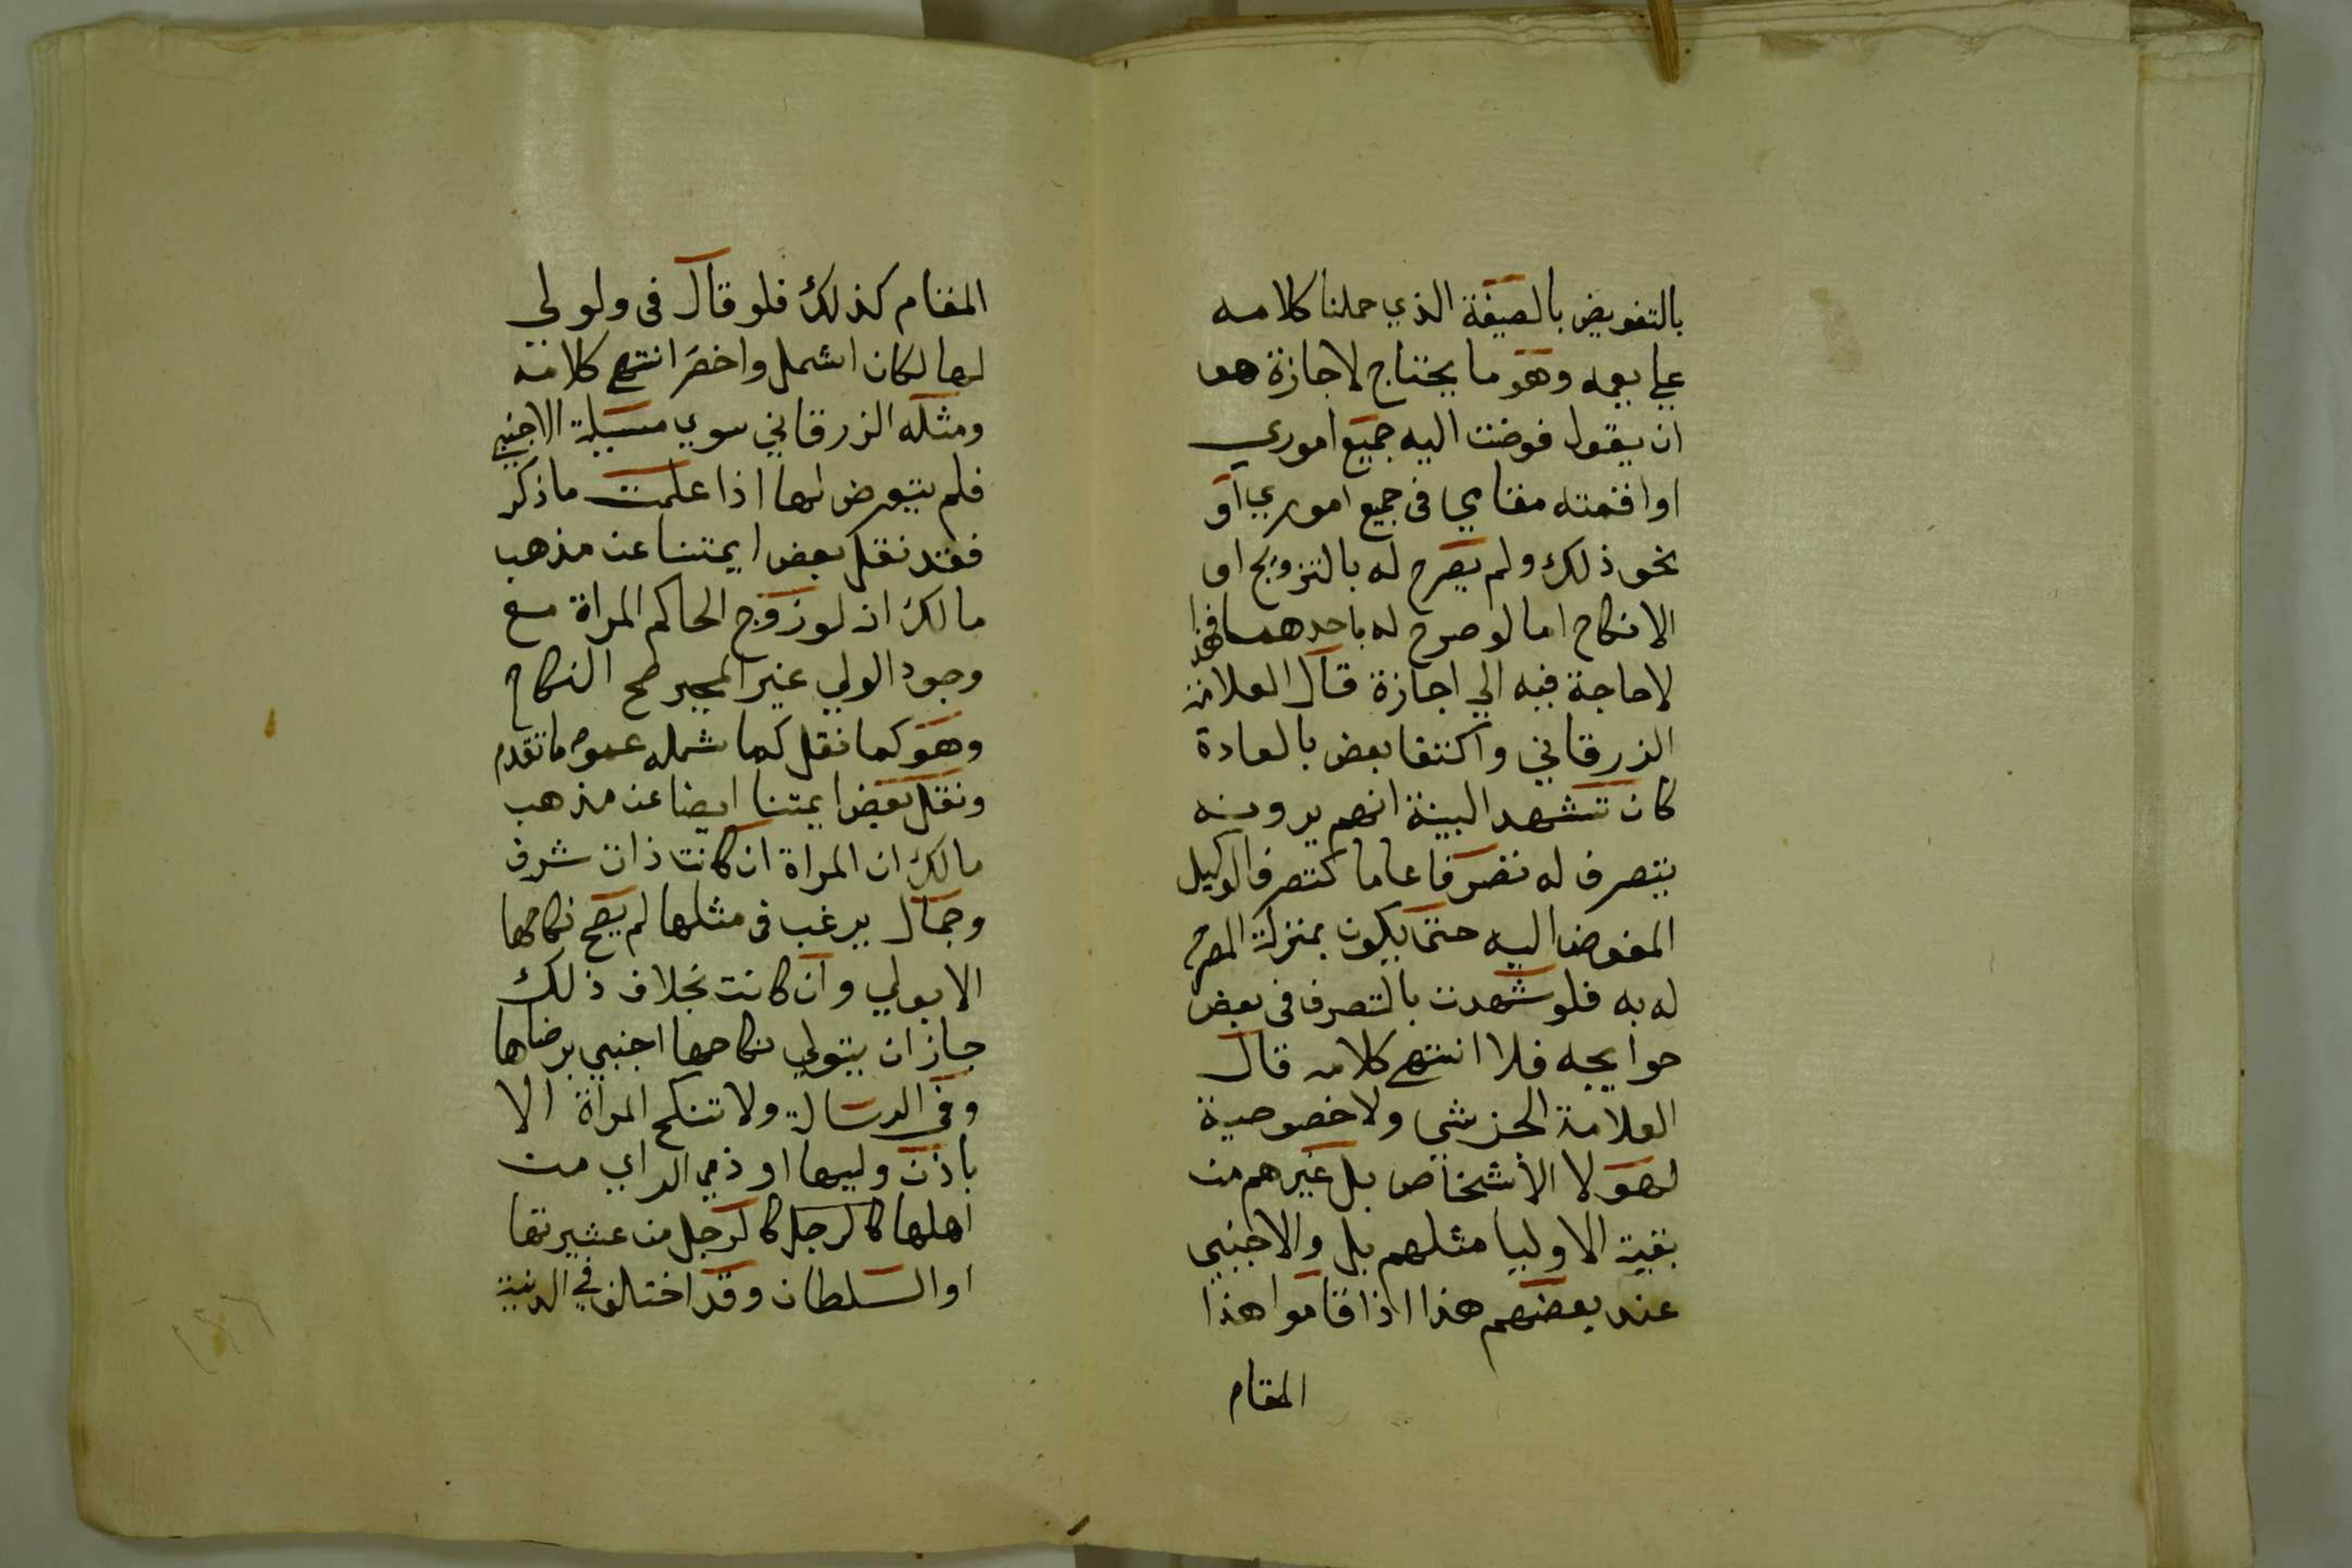 بالتفويض بالصيغة الذي حملنا كلامه
علي بعمه وهو ما يحتاج لاجازة هو
ان يقول فوضت اليه جميع اموري
او اقمته مقامي في جميع اموري او
نحو ذلك ولم يصرح له بالتزويج او
الانكاح اما لو صرح له باحدهما فهذا
لا حاجة فيه الي اجازة قال العلامة
الزرقاني واكتفا بعض بالعادة
كان تشهد البينة انهم يرونه
يتصرف له تصرفا عاما كتصرف الوكيل
المفوض اليه حتى يكون بمنزلة المصرح
له به فلو شهدت بالتصرف في بعض
حوايجه فلا انتهى كلامه قال
العلامة الخرشي ولا خصوصية
لهولا الاشخاص بل غيرهم من
بقية الاوليا مثلهم بل والاجنبي
عند بعضهم هذا اذا قاموا هذا
المقام
المقام كذلك فلو قال في ولو لي
لها لكان اشمل واخصر انتهى كلامه
ومثله الزرقاني سوي مسيلة الاجنبي
فلم يتعرض لها اذا علمت ما ذكر
فقد نقل بعض ايمتنا عن مذهب
مالك ان لو زوج الحاكم المراة مع
وجود الولي غير المجبر صح النكاح
وهو كما نقل كما شمله عموم ما تقدم
ونقل بعض ايمتنا ايضا عن مذهب
مالك ان المراة ان كانت ذات شرف
وجمال يرغب في مثلها لم يصح نكاحها
الا بولي وان كانت بخلاف ذلك
جاز ان يتولي نكاحها اجنبي برضاها
وفي الرسالة ولا تنكح المراة الا
باذن وليها او ذي الراي من
اهلها كالرجل كالرجل من عشيرتها
او السلطان وقد اختلف في الدنية